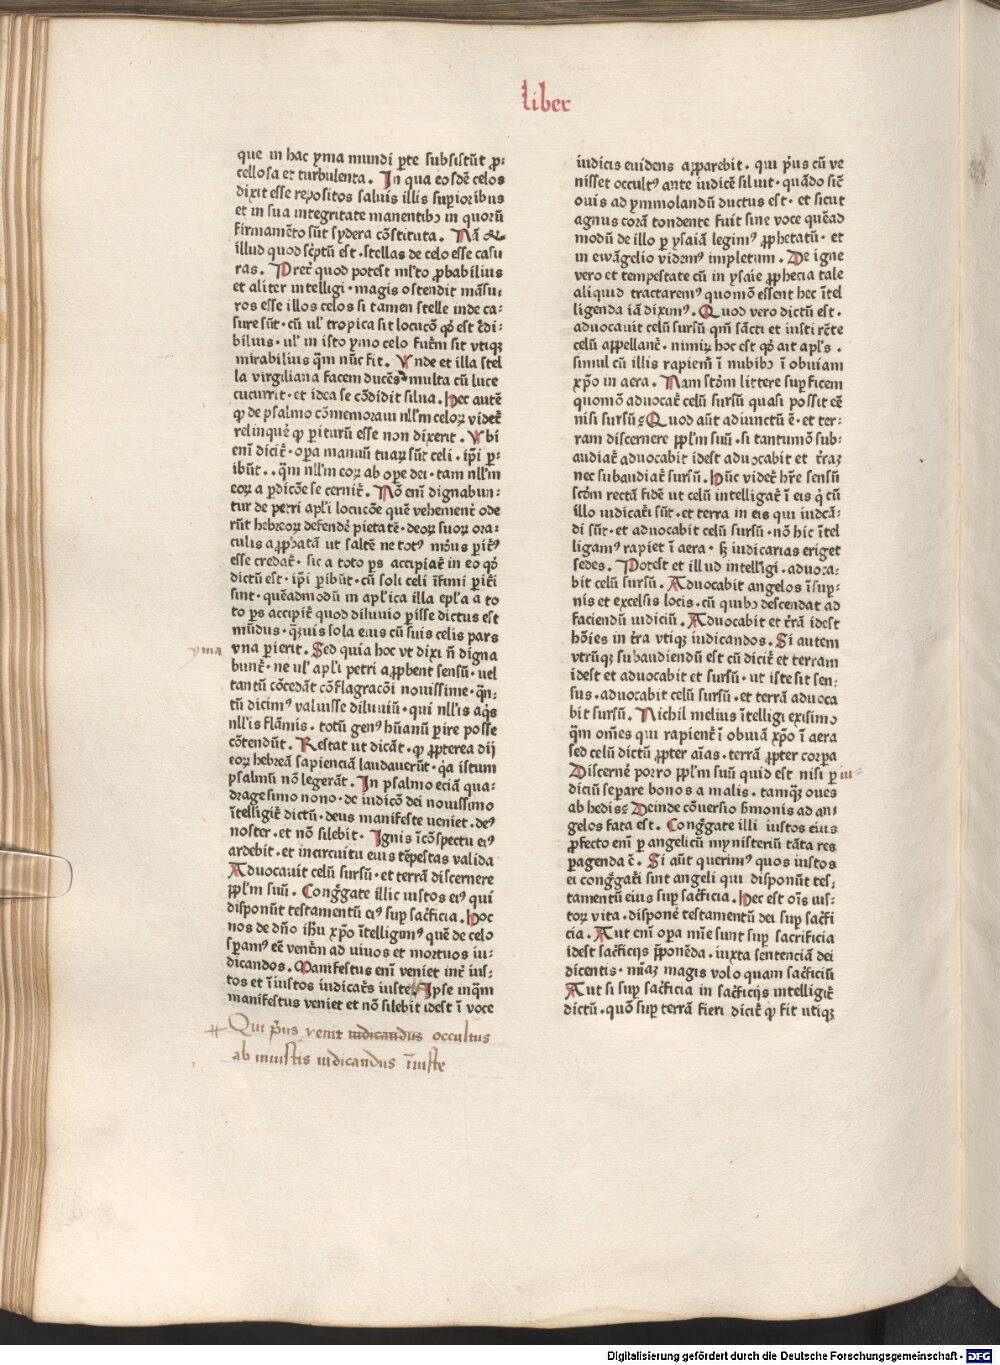 liber
que in hac yma mundi p̲te subsistūt p̱ꝛ:
cellosa et turbulenta. In qua eosdē celos
dixit esse repositos saluis illis sup̲ioribus
et in sua integritate manentibꝫ in quorū
firmamēto sūt sydera cōstituta. Nā ⁊
illud quod sc̄ptū est. stellas de celo esse casu
ras. Preꝛ̄ quod potest ml̄to ꝓbabilius
et aliter intelligi. magis ostendit māsu:
ros esse illos celos si tamen stelle inde ca:
sure sūt. cū ul̓ tropica sit locucō qd̓ est c̄di:
bilius. ul̓ in isto ymo celo futm̄ sit vtiqꝫ
mirabilius q̄m nūc fit. Vnde et illa stel
la virgiliana facem ducēs multa cū luce
cucurrit. et idea se cōdidit silua. Hec autē
qd̓ de psalmo cōmemoraui nll̓m celoꝝ videt̄
relinquē̓ qd̓ p̲iturū esse non dixerit. Vbi
enī dicit̄. op̲a manuū tuaꝝ sūt celi. ip̄i p̲:
ibūt.. q̄m nll̓m eoꝝ ab op̲e dei. tam nll̓m
eoꝝ a p̲dicōe se cernit̄. Nō enī dignabun:
tur de petri apl̓i locucōe quē vehement̄ ode
rūt hebreoꝝ defendē̓ pietatē. deoꝝ suoꝝ ora:
culis aꝓbatā ut saltē ne totꝰ mōus p̲it̄ꝰ
esse credat̄. sic a toto p̲s accipiat̄ in eo qd̓
dictū est. ip̄i p̲ibūt. cū soli celi īfimi p̲it̄i
sint. quēadmodū in apl̓ica illa epl̓a a to
to p̲s accipit̄ quod diluuio p̲isse dictus est
mūdus. q̄ꝫuis sola eius cū suis celis pars
yma
vna p̲ierit. Sed quia hoc vt dixi ñ digna
bunt̄. ne ul̓ apl̓i petri aꝓbent sensū. uel
tantū cōcedāt cōflagracōi nouissime. q̄n:
tū dicimꝰ valuisse diluuiū. qui nll̓is aq̓s
nll̓is flāmis. totū genꝰ hūanū p̲ire posse
cōtendūt. Restat ut dicāt. qd̓ ꝓpterea dij
eoꝝ hebreā sapienciā laudauerūt. q̓a istum
psalmū nō legerāt. In psalmo eciā qua:
dragesimo nono. de iudicō dei nouissimo
ītelligit̄ dictū. deus manifeste ueniet. deꝰ
noster. et nō silebit. Ignis īcōspectu eiꝰ
ardebit. et incircuitu eius tēpestas valida
Aduocauit celū sursū. et terrā discernere
ppl̓m suū. Congꝛ̄gate illic iustos eiꝰ qui
disponūt testamentū eiꝰ sup̲ sac̄ficia. Hoc
nos de dn̄o ih̄u xp̄o ītelligimꝰ quē de celo
sp̲amꝰ eē ventm̄ ad uiuos et mortuos iu:
dicandos. Manifestus enī veniet int̄ ius:
tos et īiustos iudicat̄s iuste. Ipse inq̄m
manifestus veniet et nō silebit idest ī voce
# Qui p̄us venit iudicandus occultus
ab iniustis iudicandus īiuste
iudicis euidens aꝑparebit. qui p̄us cū ve
nisset occultꝰ ante iudicē siluit. quādo sic̄
ouis ad ymmolandū ductus est. et sicut
agnus corā tondente fuit sine voce quēad
modū de illo p̲ ysaiā legimꝰ ꝓphetatū. et
in ewāgelio videmꝰ impletum. De igne
vero et tempestate cū in ysaie ꝓphecia tale
aliquid tractaremꝰ quomō essent hec ītel
ligenda iā diximꝰ. Quod vero dictū est.
aduocauit celū sursū qm̄ sācti et iusti rc̄te
celū appellant̄. nimiꝝ hoc est qd̓ ait apl̓s.
simul cū illis rapiem̄ ī nubibꝫ ī obuiam
xp̄o in aera. Nam sc̄dm littere sup̲ficem
quomō aduocat̄ celū sursū quasi possit eē
nisi sursū? Quod aūt adiunctū ē. et ter:
ram discernere ppl̓m suū. si tantumō sub:
audiat̄ aduocabit idest aduocabit et t̄raꝫ
nec subaudiat̄ sursū. Hūc videt̄ hr̄e sensū
sc̄dm rectā fidē ut celū intelligat̄ ī eis q̓ cū
illo iudicat̄i sūt. et terra in eis qui iudcā:
di sūt. et aduocabit celū sursū. nō hic ītel
ligamꝰ rapiet ī aera. sꝫ iudicarias eriget
sedes. Potest et illud intell̓igi. aduoca:
bit celū sursū. Aduocabit angelos īsup̲:
nis et excelsis locis. cū quibꝫ descendat ad
faciendū iudiciū. Aduocabit et t̄rā idest
hōies in t̄ra vtiqꝫ iudicandos. Si autem
vtrūqꝫ subaudiendū est cū dicit̄ et terram
idest et aduocabit et sursū. ut iste sit sen:
sus. aduocabit celū sursū. et terrā aduoca
bit sursū. Nichil melius ītelligi existimo
q̄m om̄es qui rapient̄ ī obuiā xp̄o ī aera
sed celū dictū ꝓpter aīas. terrā ꝓpter corpa
Discernē̓ porro ppl̓m suū quid est nisi p̲ iu-
diciū sep̲are bonos a malis. tamq̄ꝫ oues
ab hedis? Deinde cōuersio s̄monis ad an:
gelos fata est. Congꝛ̄gate illi iustos eius
ꝓfecto enī p̲ angelicū mynisteriū tāta res
p̲agenda ē. Si aūt querimꝰ quos iustos
ei congꝛ̄gat̄i sint angeli qui disponūt tes:
tamentū eius sup̲ sac̄ficia. Hec est oīs ius:
toꝝ vita. disponē̓ testamentū dei sup̲ sac̄fi
cia. Aut enī op̲a mīe sunt sup̲ sacrificia
idest sac̄ficijs p̄ponēda. iuxta sentenciā dei
dicentis. mīaꝫ magis volo quam sac̄ficiū
Aut si sup̲ sac̄ficia in sac̄ficijs intelligit̄
dictū. quō sup̲ terrā fieri dicit̄ qd̓ fit utiqꝫ
Digitalisierung gefördert durch die Deutsche Forschungsgemeinschaft - DFG